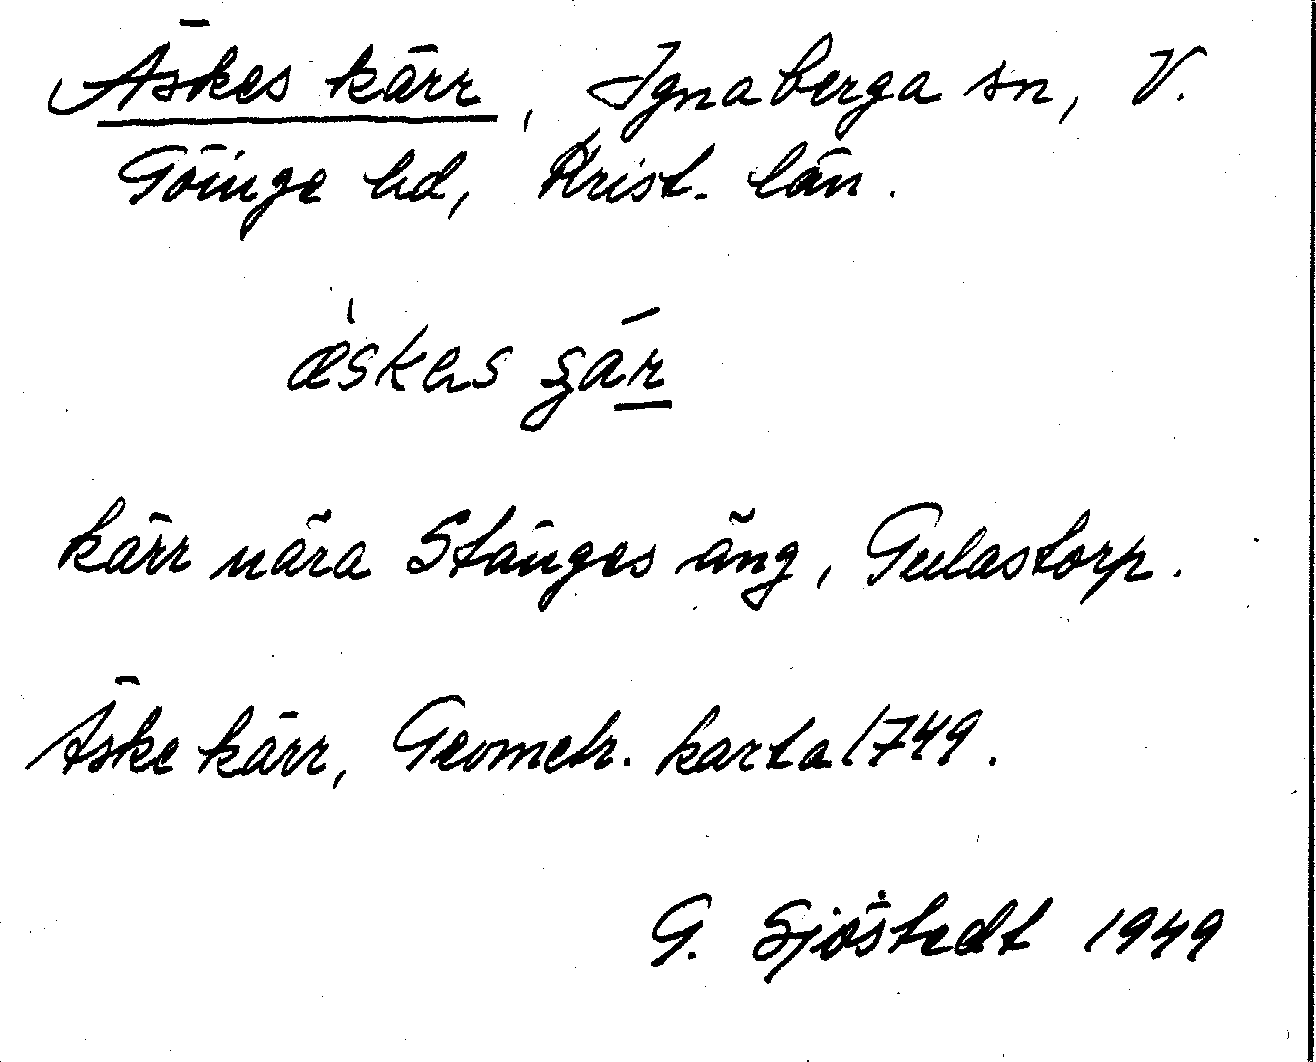 Äskes kärr, Ignaberga sn, V.
Göinge hd, Krist. län.
æ̀skəs şár
kärr nära Stänges äng, Gulastorp.
Äske kärr, Geometr. karta 1749.
G. Sjöstedt 1949